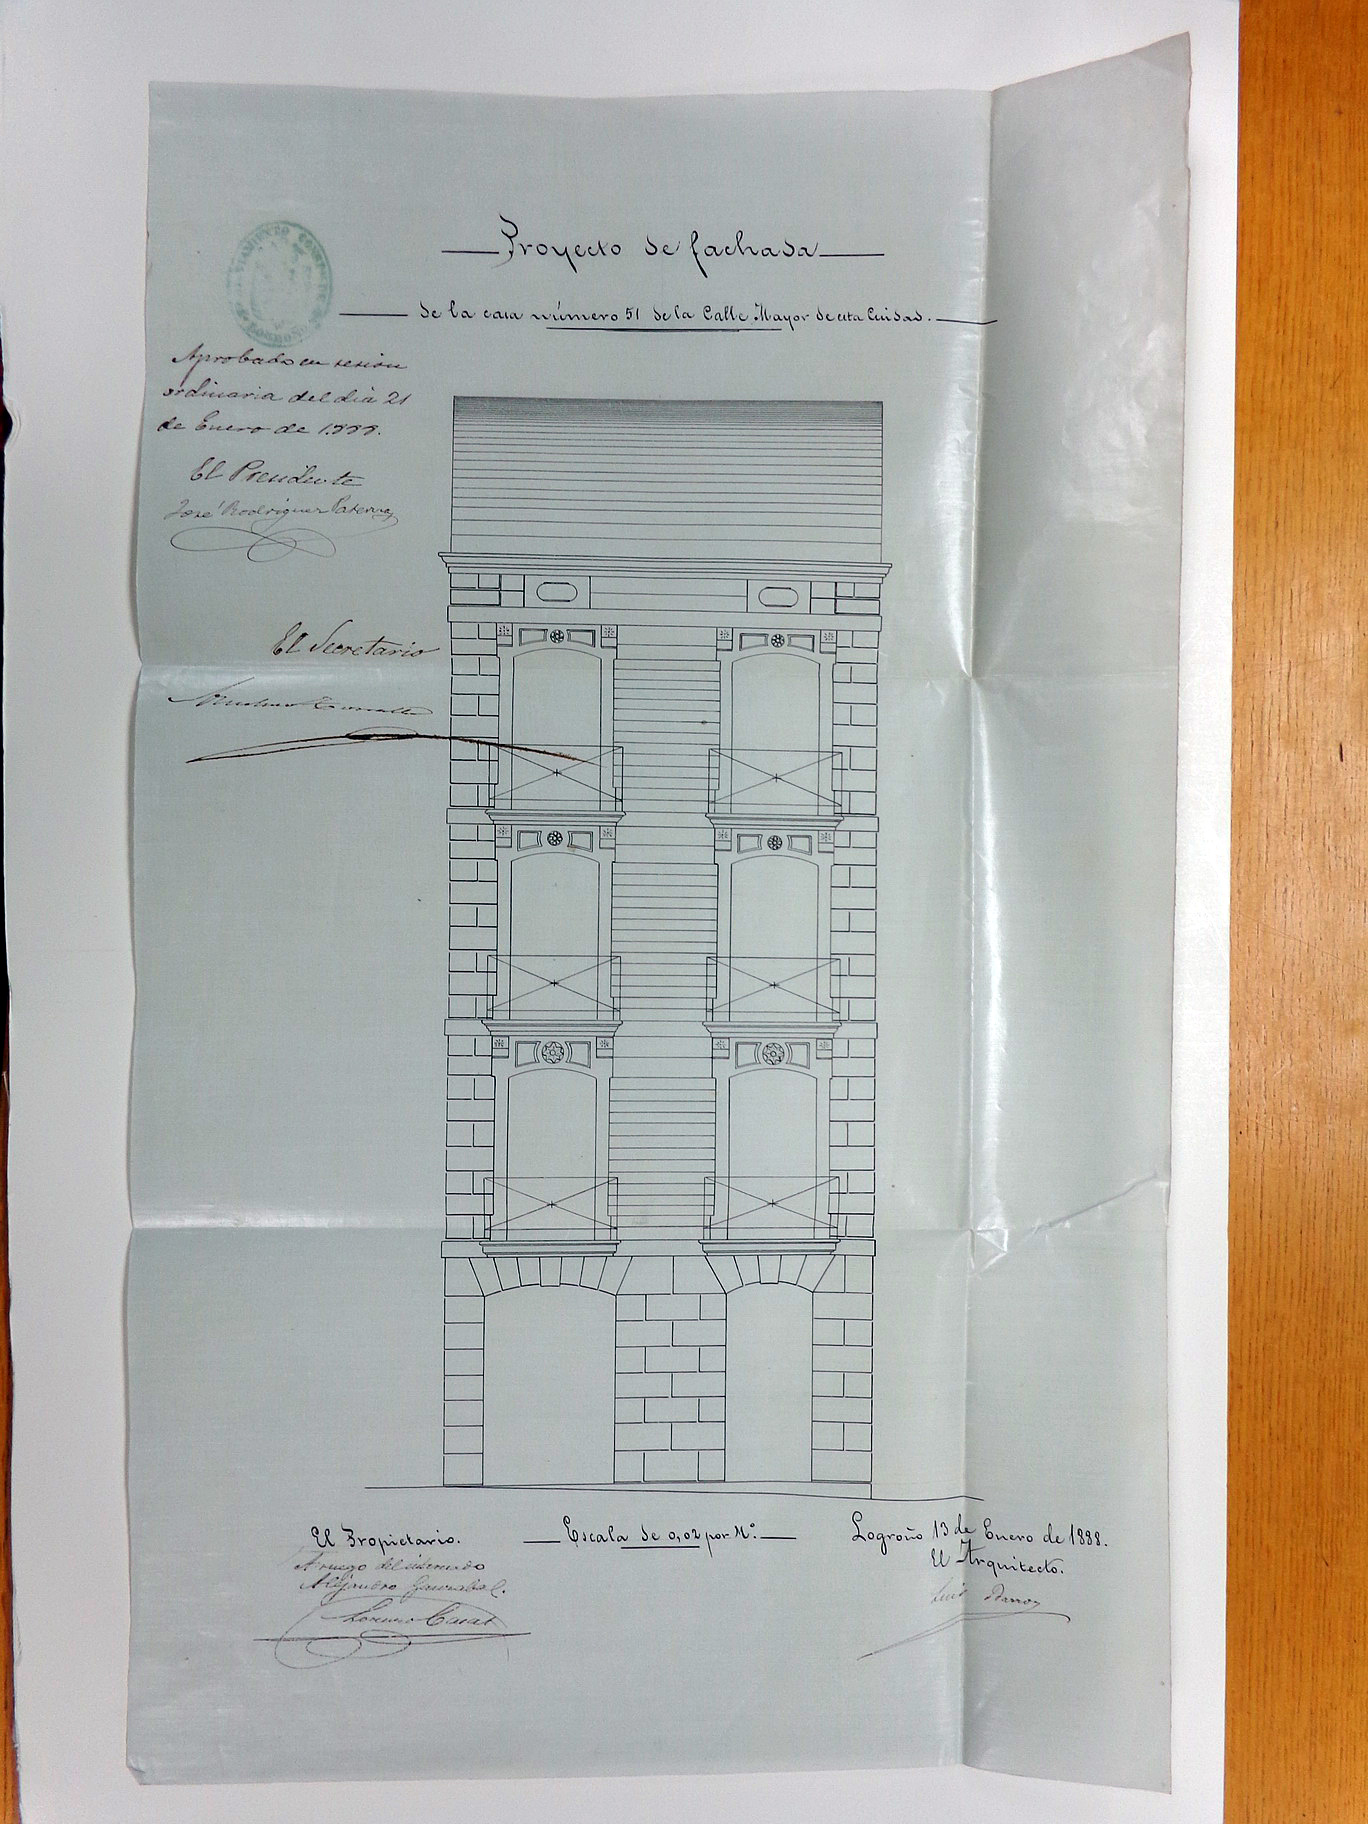 Proyecto de fachada
de la casa número 51 de la Calle Mayor de esta Ciudad.
Aprobado en sesion
ordinaria del dia 21
de Enero de 1888.
El Presidente
José Rodriguez Paterna
El Secretario
El Propietario.
A ruego del interesado
Alejandro
Lorenzo
Escala de 0,02 por M.º
Logroño 13 de Enero de 1888.
El Arquitecto.
Luis Barron